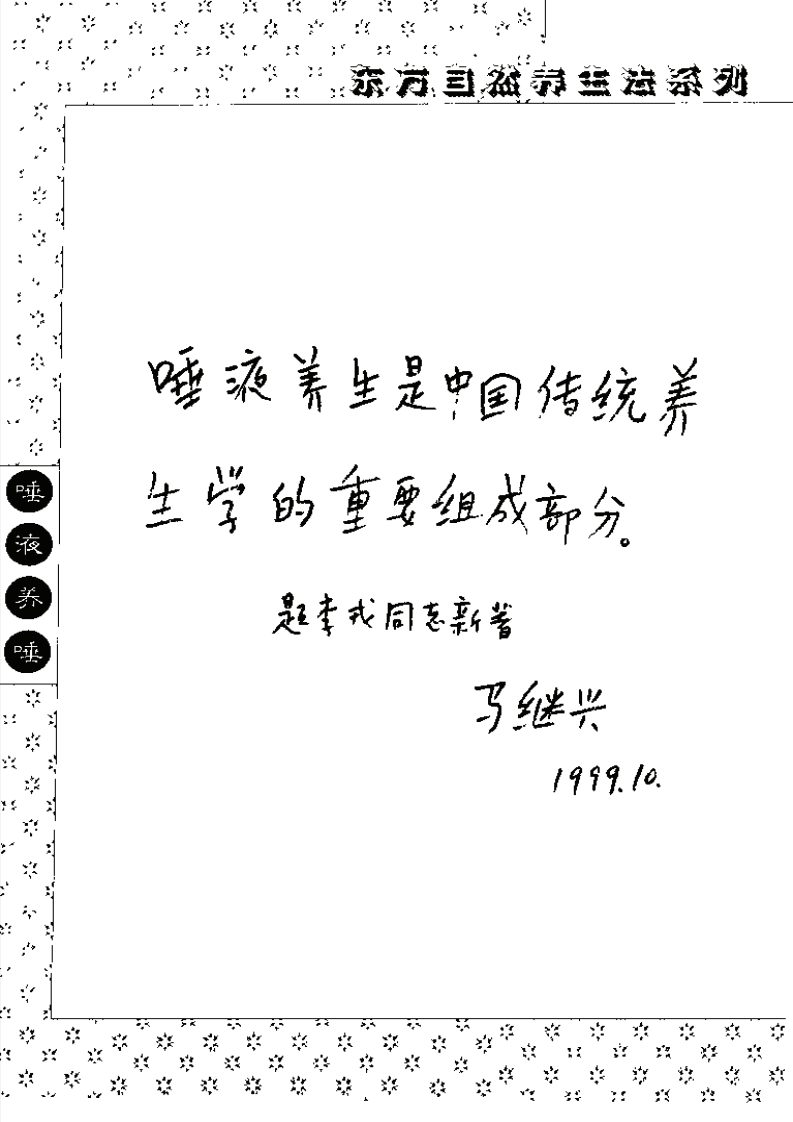 东方自然养生法系列
唾液养生是中国传统养
生学的重要组成部分。
题李戎同志新著
马继兴
1999.10.
唾
液
养
唾